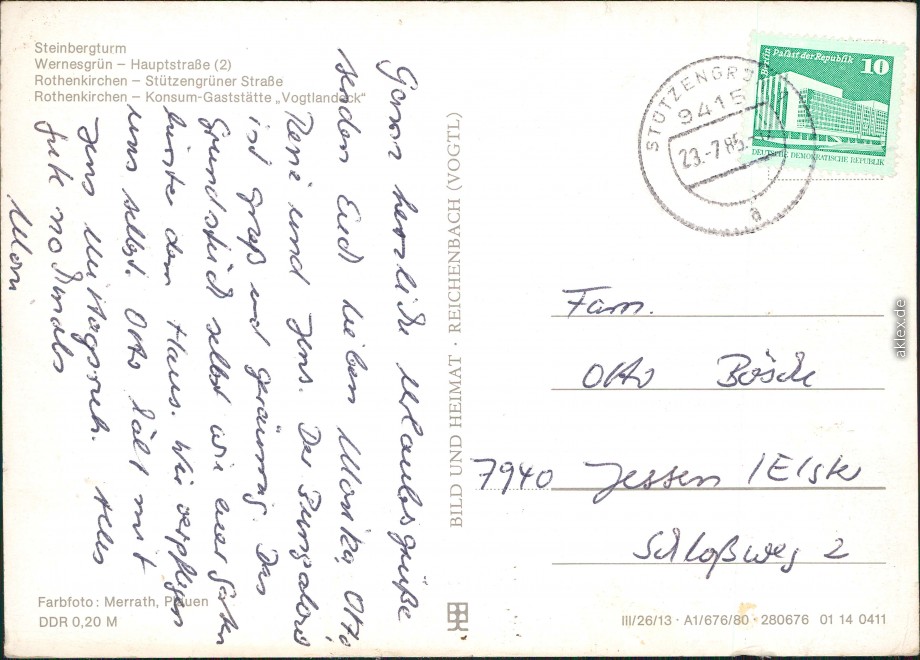 Steinbergturm
Wernesgrün – Hauptstraße (2)
Rothenkirchen – Stützengrüner Straße
Rothenkirchen – Konsum-Gaststätte „Vogtlandeck"
Ganz herzliche Urlaubsgrüße
senden Euch lieben Monika, Otto
René und Jens. Der Bungalow
ist groß und geräumig. Das
Grundstück selbst wie euer Garten
hinter dem Haus. Wir verpflegen
uns selbst. Otto hält mit
Jens Mittagsruh. Alles
Gute nochmals
Moni
Farbfoto: Merrath, Plauen
DDR 0,20 M
BILD UND HEIMAT · REICHENBACH (VOGTL)
STÜTZENGRÜN
9415
23.-7.85.-
a
Berlin Palast der Republik
10
DEUTSCHE DEMOKRATISCHE REPUBLIK
Fam.
Otto Bösche
7940 Jessen /Elster
Schloßweg 2
III/26/13 · A1/676/80 · 280676 01 14 0411
aklex.de